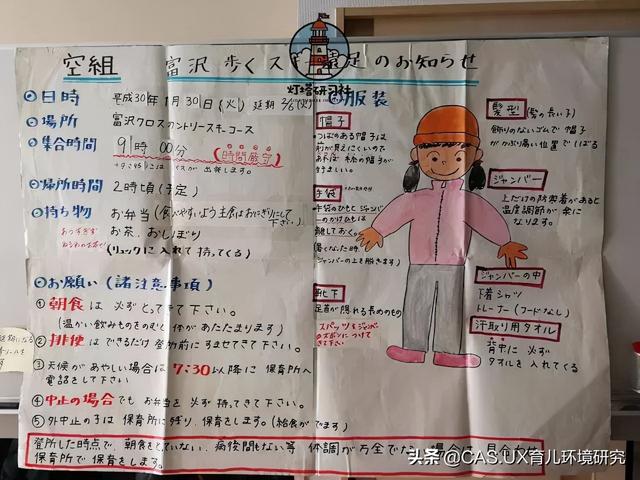 空組 富沢 歩くスキー遠足のお知らせ
灯塔研习社
日時 平成30年1月30日(火) 延期 2/6(火)
場所 富沢クロスカントリースキーコース
集合時間 9時00分 (時間厳守)
バスが出発します。
帰所時間 2時頃(予定)
持ち物 お弁当(食べやすいよう主食はおにぎりにして下さい。)
お茶、おしぼり
(リュックに入れて持ってくる)
お願い(諸注意事項)
①朝食は必ずとってきて下さい。
(温かい飲みものをのむと体があたたまります)
②排便はできるだけ登所前にすませてきて下さい。
③天候があやしい場合は7:30以降に保育所へ
電話をして下さい
④中止の場合でもお弁当を必ず持ってきて下さい。
⑤外中止の子は保育所に残り、保育をします。(給食がでます)
登所した時点で、朝食をとっていない、病後間もない等 体調が万全でない場合は
保育所で保育をします。
服装
帽子
つばのある帽子は
前が見えにくいので
手袋
(暑くなった時、
ジャンバーの上を脱ぎます)
靴下
足首が隠れる長めのもの
スパッツもジャンバー
のズボンにつけて
きて下さい
髪型(髪の長い子)
飾りのないゴムで 帽子
がかぶり易い位置でしばる
ジャンバー
上だけの防寒着があると
温度調節が楽に
なります。
ジャンバーの中
下着シャツ
トレーナー(フードなし)
汗取り用タオル
背中に必ず
タオルを入れてくる
头条 @CAS.UX育儿环境研究